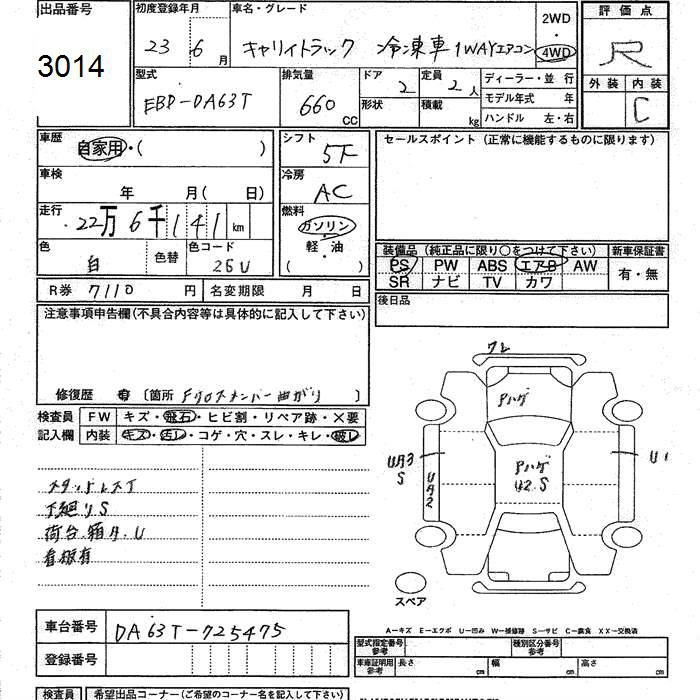 出品番号 3014
初度登録年月 23 6月
車名・グレード キャリイトラック 冷凍車 1WAYエアコン
2WD・4WD
評価点 R
外装 内装 C
型式 EBD-DA63T
排気量 660 CC
ドア 2 形状
定員 2人 積載 kg
ディーラー・並行
モデル年式 年
ハンドル 左・右
車歴 自家用・( )
シフト 5F
セールスポイント (正常に機能するものに限ります)
車検 年 月( 日)
冷房 AC
走行 22万6千141 km
燃料 ガソリン・軽・油 ( )
色 白 色替 色コード 26U
装備品 (純正品に限り○をつけて下さい) 新車保証書
PS PW ABS エアB AW 有・無
SR ナビ TV カワ
R券 7110 円 名変期限 月 日
後日品
注意事項申告欄(不具合内容等は具体的に記入して下さい)
修復歴 有 〔箇所 Fクロスメンバー曲がり 〕
検査員記入欄
FW キズ・飛石・ヒビ割・リペア跡・×要
内装 キズ・汚レ・コゲ・穴・スレ・キレ・破レ
スタッドレスT
下廻りS
荷台箱内.U
看板有
ワレ
Pハゲ
Pハゲ
U2.S
UA3
S
UA2
U1
スペア
A−キズ E−エクボ U−凹み W−補修跡 S−サビ C−腐食 XX−交換済
車台番号 DA63T-725475
登録番号
型式指定番号 参考 種別区分番号 参考
車庫証明用 参考 長さ cm 幅 cm 高さ cm
検査員 希望出品コーナー(ご希望のコーナー名を記入して下さい)